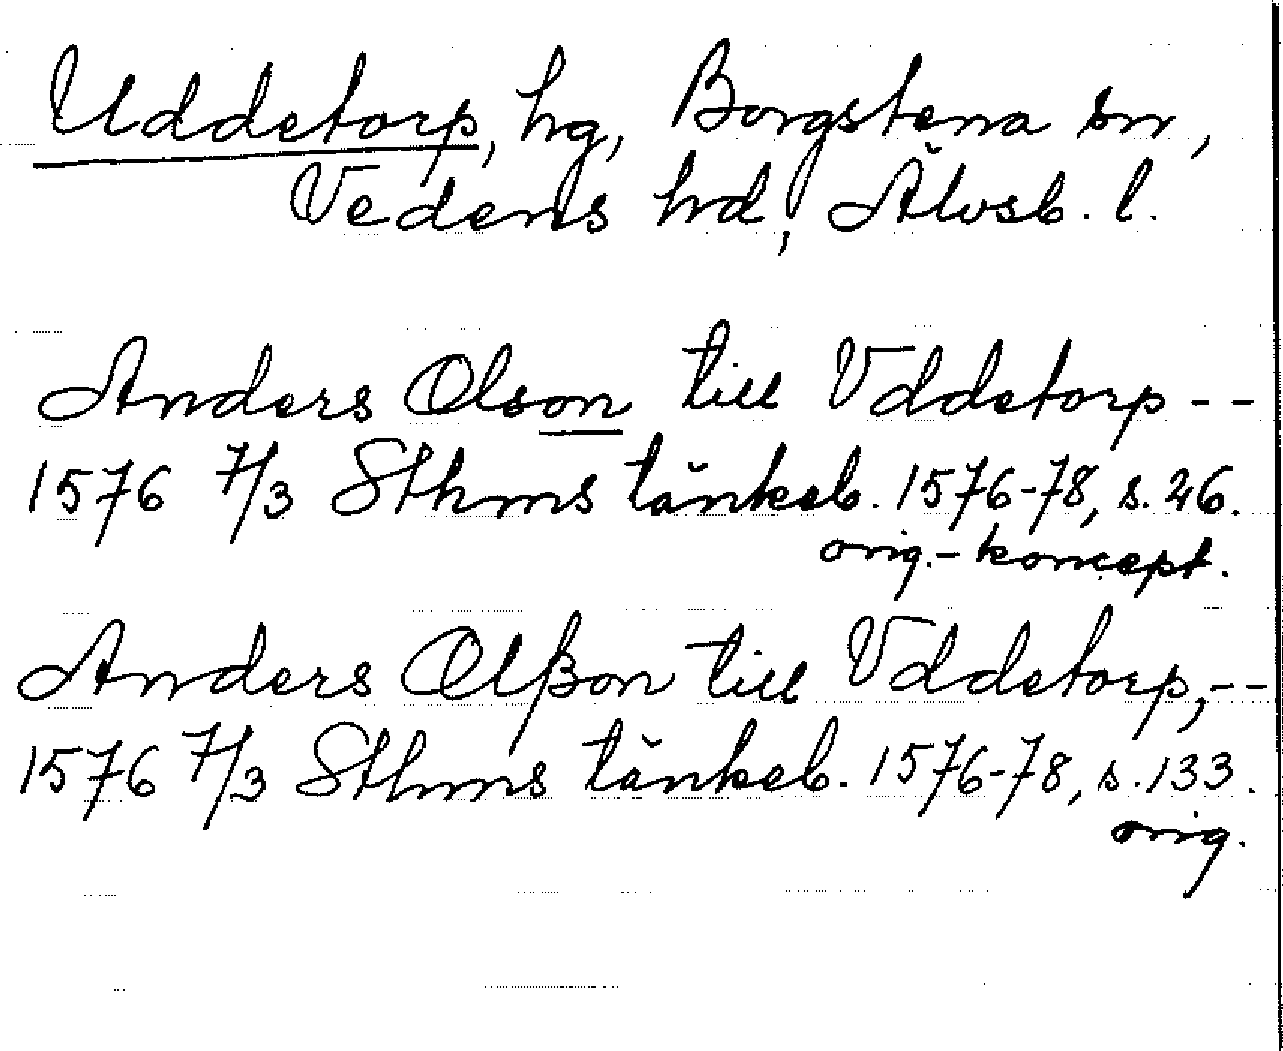 Uddetorp, hg, Borgstena sn,
Vedens hd, Älvsb. l.
Anders Olson till Vddetorp --
1576 7/3 Sthms tänkeb. 1576-78, s. 26.
orig.- koncept.
Anders Olßon till Vddetorp, --
1576 7/3 Sthms tänkeb. 1576-78, s. 133.
orig.